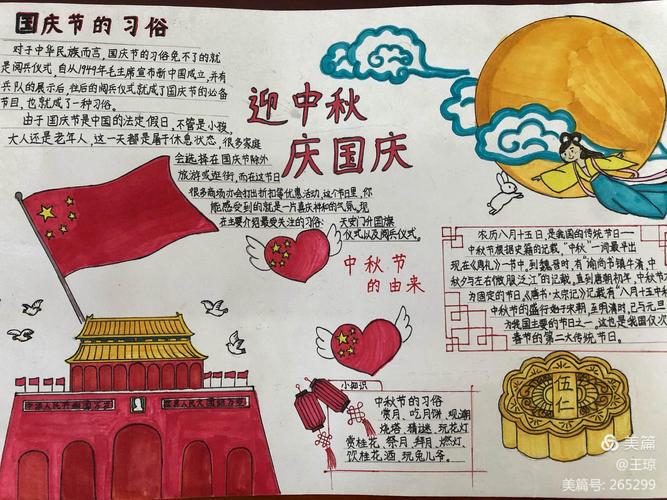 国庆节的习俗
对于中华民族而言,国庆节的习俗免不了的就
是阅兵仪式,自从1949年毛主席宣布新中国成立,并有
兵队的展示后,往后的阅兵仪式就成了国庆节的必备
节目,也就成了一种习俗。
由于国庆节是中国的法定假日,不管是小孩,
大人还是老年人,这一天都是属于休息状态,很多家庭
会选择在国庆节除外
旅游或逛街,而在这节日
很多商场亦会打出折扣等优惠活动,这个节日里,你
能感受到的就是一片喜庆祥和的气氛。现
在主要介绍最受关注的习俗:天安门升国旗
仪式以及阅兵仪式。
迎中秋
庆国庆
中秋节
的由来
农历八月十五日,是我国的传统节日—
中秋节根据史籍的记载,“中秋”一词最早出
现在《周礼》一书中,到魏晋时,有“谕尚书镇牛渚,中
秋夕与左右微服泛江”的记载,直到唐朝初年,中秋节
为固定的节日,《唐书·太宗记》记载有“八月十五中秋
中秋节的盛行始于宋朝,至明清时,已与元旦
为我国主要的节日之一,这也是我国仅次
春节的第二大传统节日。
小知识
中秋节的习俗
赏月、吃月饼、观潮
烧塔、猜谜、玩花灯
赏桂花、祭月、拜月、燃灯、
饮桂花酒、玩兔儿爷。
伍仁
美篇
@王琼
美篇号: 265299